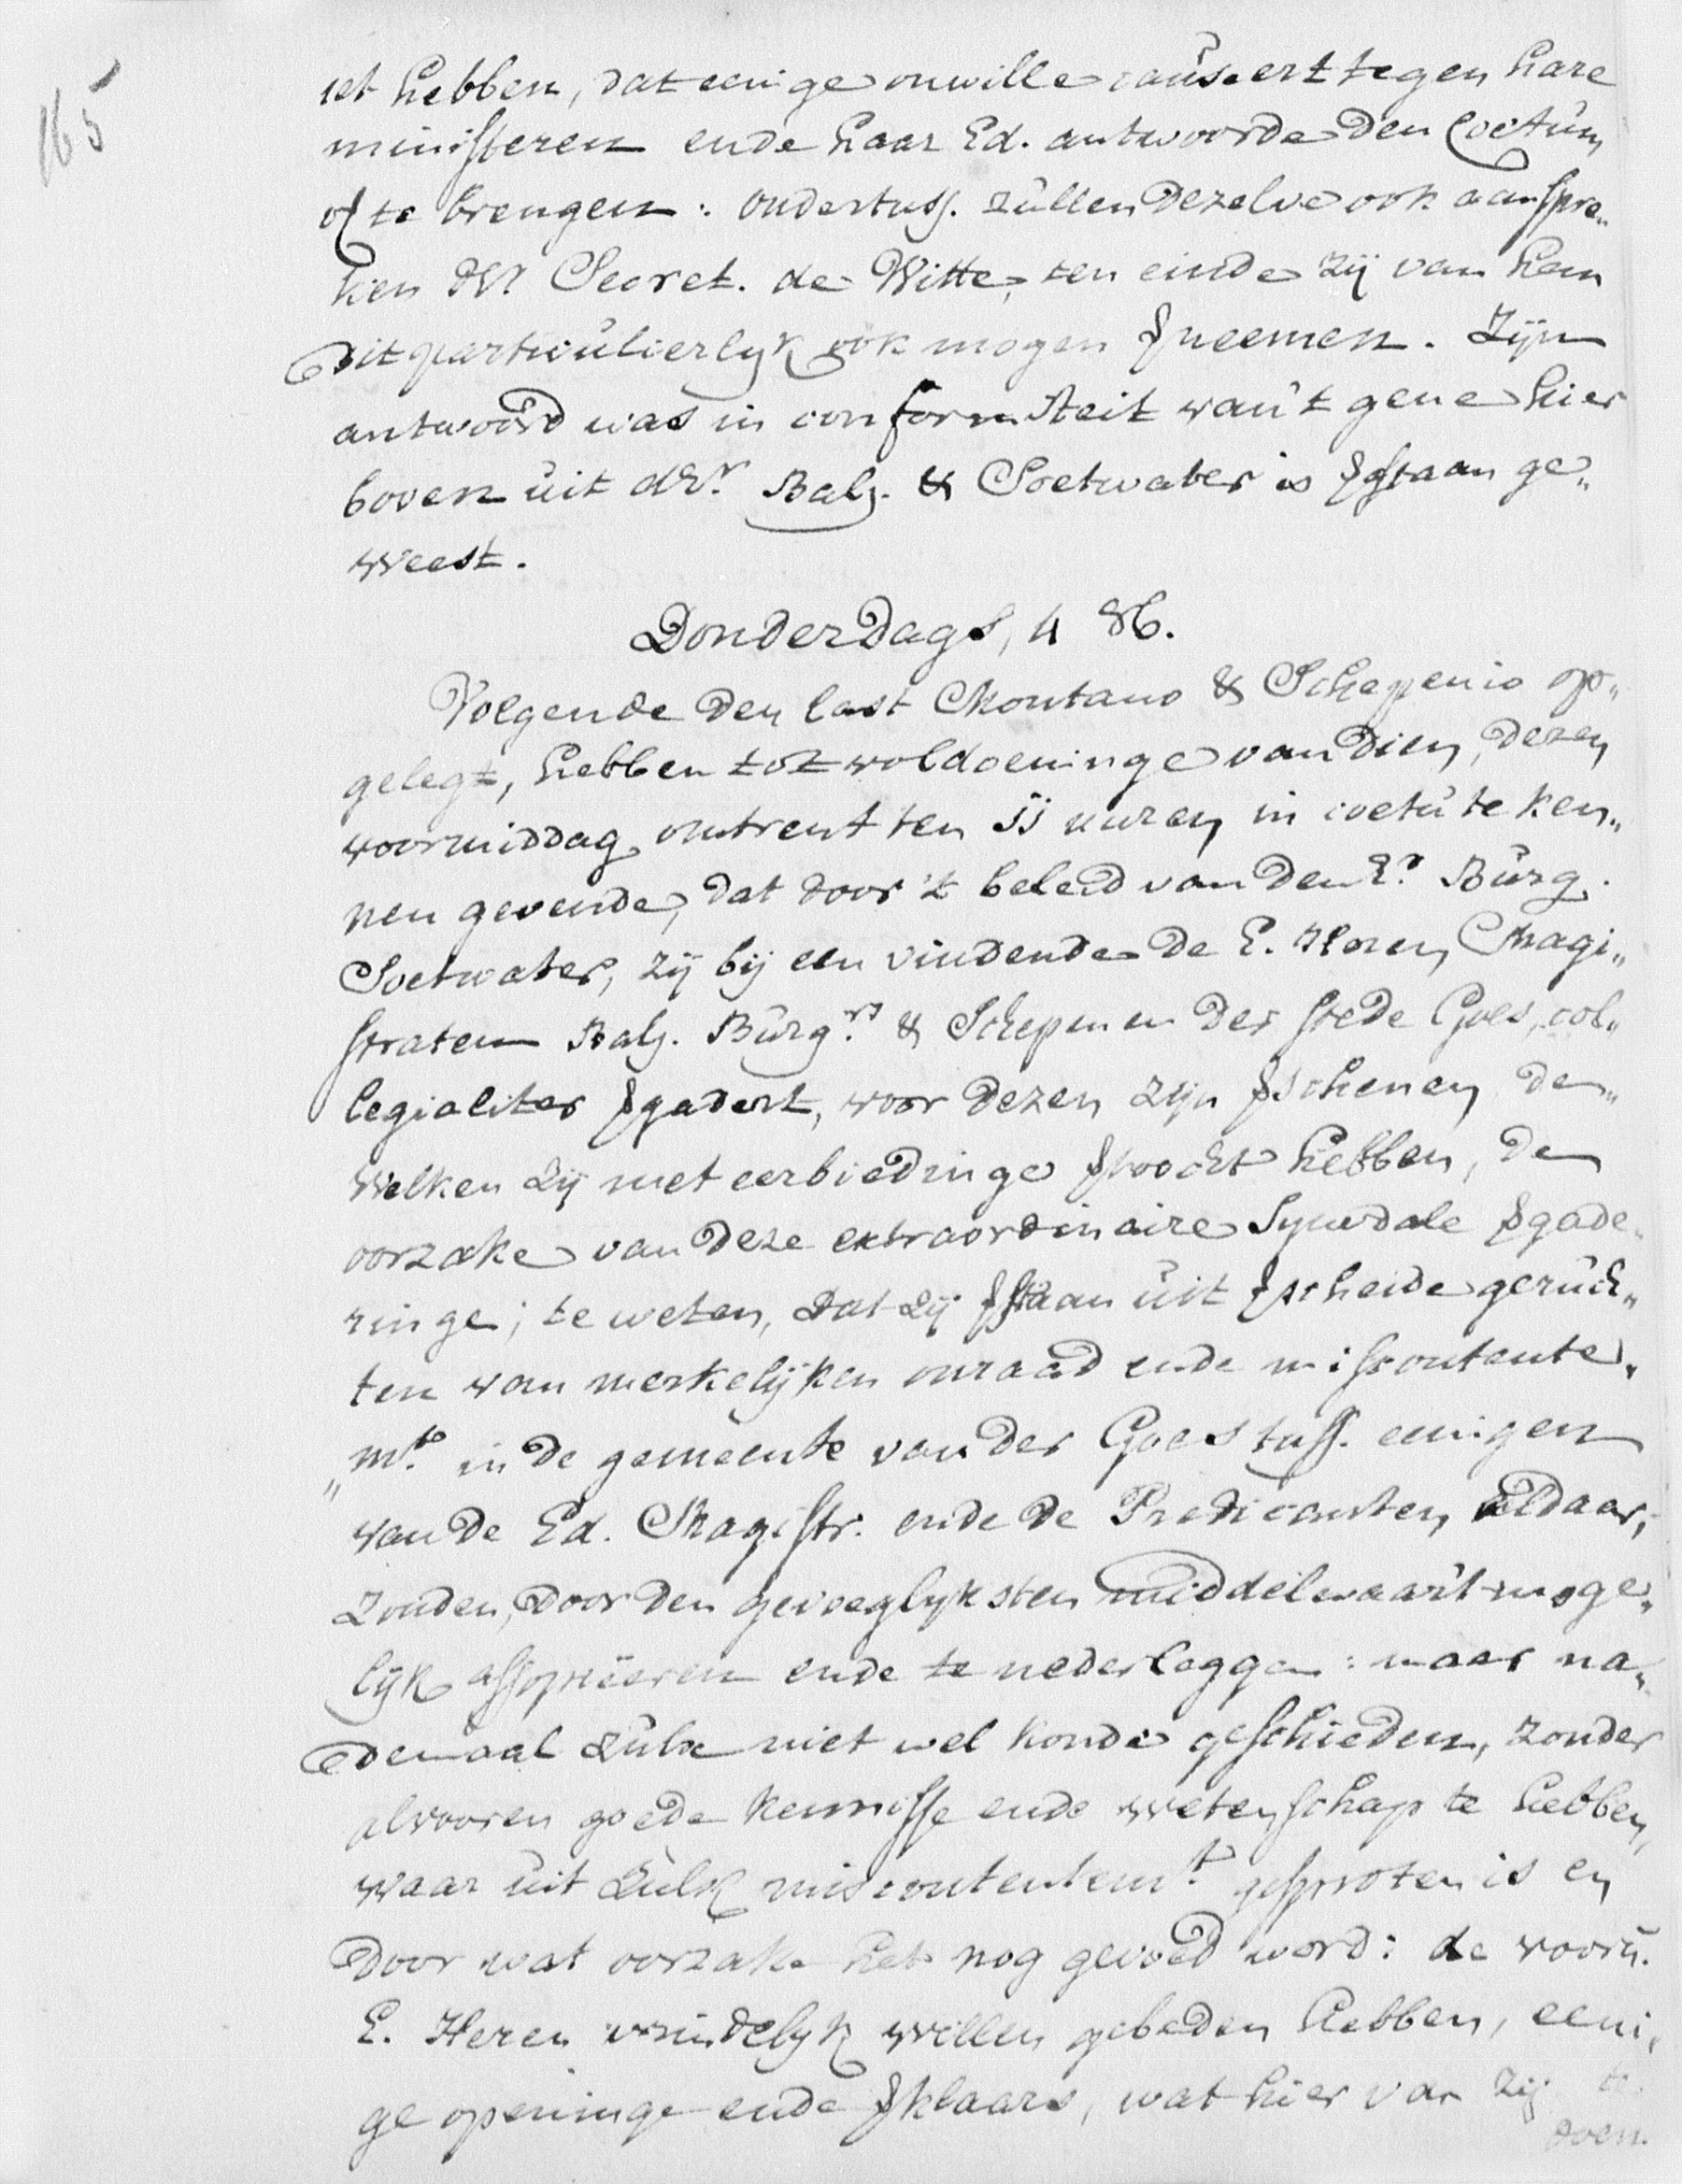 165
iet hebben, dat eenige onwille causeert tegen hare
ministeren ende haar Ed. antwoorde den Coetum
of te brengen: ondertuss. zullen dezelve ook aanspre„
ken Dhr. Secret. de Witte, ten einde zij van hem
dit particulierlijk ook mogen ꝟneemen. Zijn
antwoord was in conformiteit van 't gene hier
boven uit dHr. Balj. & Soetwater is ꝟstaan ge„
weest.
Donderdags, 4 8b.
Volgende den last Montano & Schepenio op„
gelegt, hebben tot voldoeninge van dien, dezen
voormiddag omtrent ten 11 uuren in coetu te ken„
nen gevende, dat door 't beleid van den Er. Burg.
Soetwater, zij bij een vindende de E. Heren Magi„
straten Balj. Burgrs. & Schepenen der stede Goes, col„
legialiter ꝟgadert, voor dezen zijn ꝟschenen, de„
welken zij met eerbiedinge ꝟzocht hebben, de
oorzake van deze extraordinaire Synodale ꝟgade„
ringe; te weten, dat zij ꝟstaan uit ꝟscheide geruch„
ten van merkelijken onraad ende miscontente„
„mte. in de gemeente van der Goes tuss. eenigen
van de Ed. Magistr. ende de Predicanten aldaar,
zouden, door den gevoeglyksten middel waar't moge„
lijk assopiëeren ende te nederleggen: maar na„
demaal zulx niet wel konde geschieden, zonder
alvooren goede kennisse ende wetenschap te hebben,
waar uit zulk miscontentemt. gesproten is en
door wat oorzake het nog gevoed word: de voorn.
E. Heren vrindelyk willen gebeden hebben, eeni„
ge openinge ende ꝟklaars, wat hier van zij te
doen.